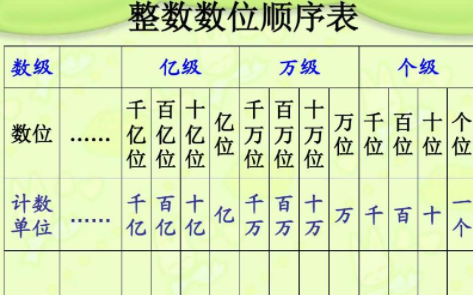 整数数位顺序表
数级 亿级 万级 个级
数位 …… 千亿位 百亿位 十亿位 亿位 千万位 百万位 十万位 万位 千位 百位 十位 个位
计数单位 …… 千亿 百亿 十亿 亿 千万 百万 十万 万 千 百 十 一个